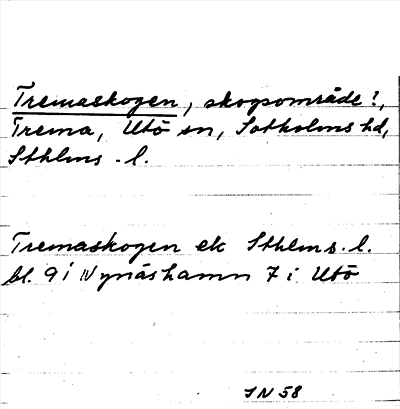 Tremaskogen, skogsområde?,
Trema, Utö sn, Sotholms hd,
Sthlms. l.
Tremaskogen ek Sthlms. l.
bl. 9 i Nynäshamn 7 i Utö
JN 58